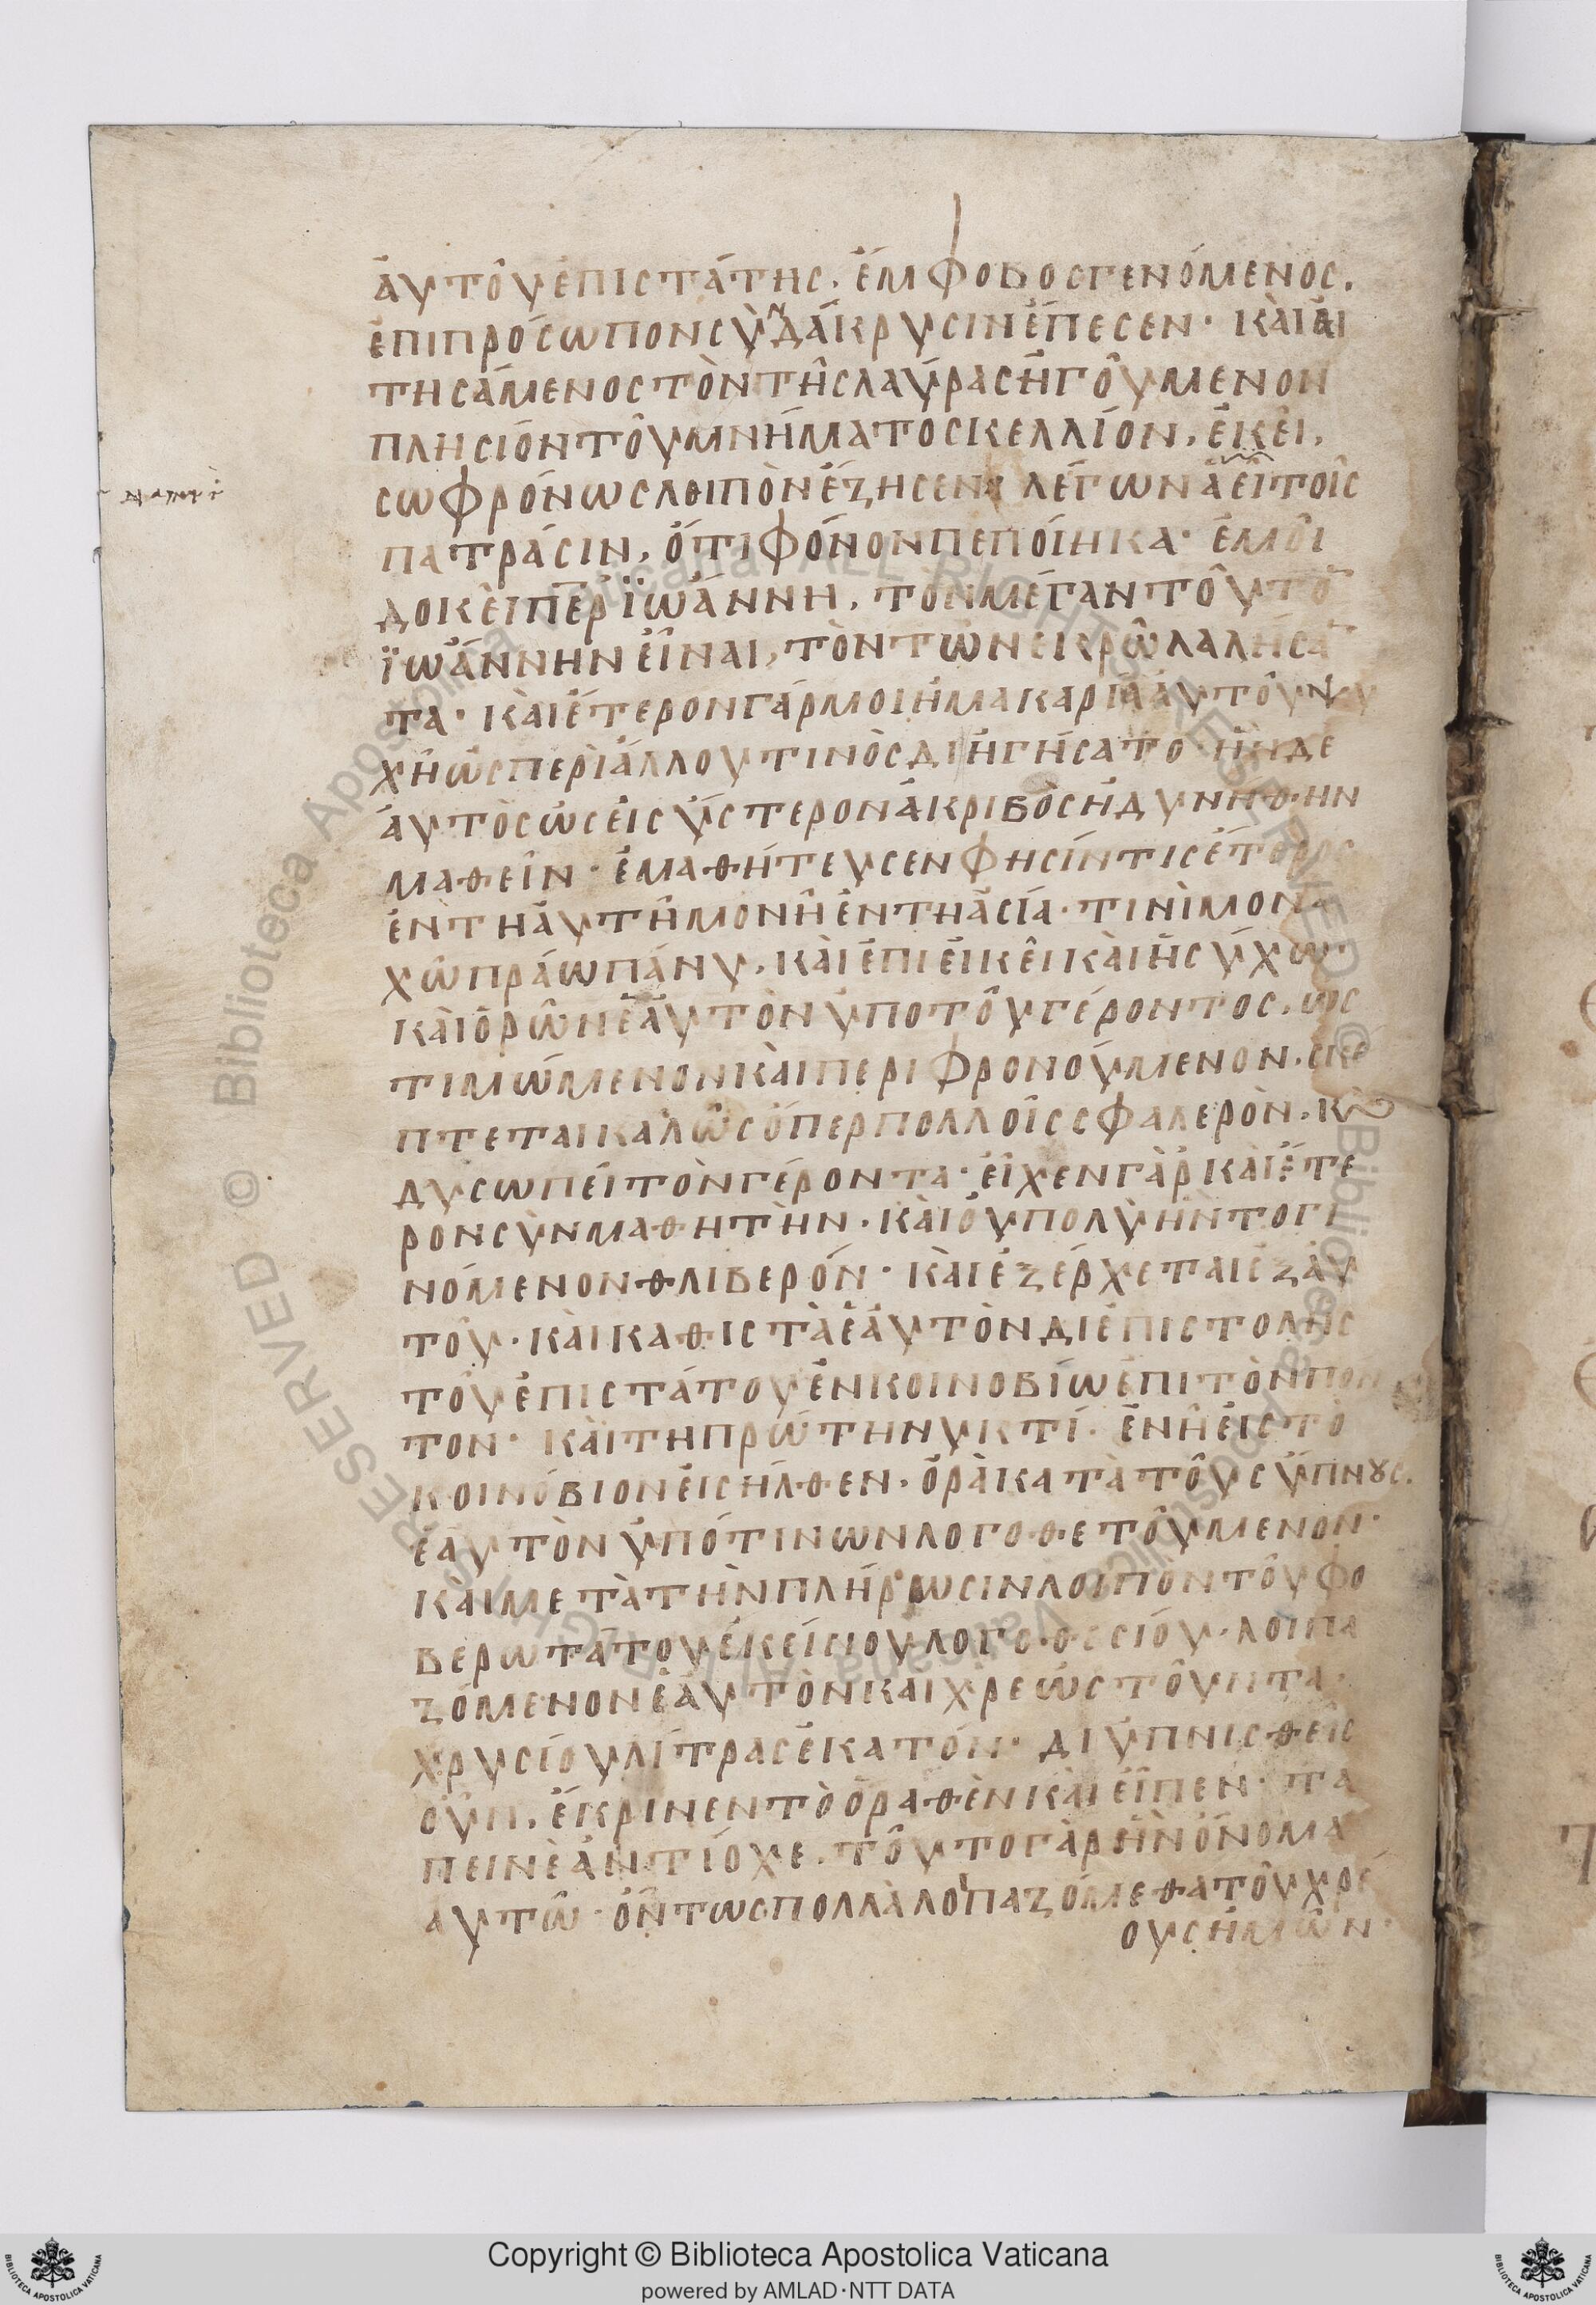 ἀυτοῦ ἐπιστάτης. ἔμφοβος γενόμενος.
ἐπιπρόσωπον σὺν δάκρυσιν ἔπεσεν· καὶ ἀι
τησάμενος τὸν τῆς λαύρας ἡγοῦμενον
πλησιόν τοῦ μνήματος κελλίον, ἐκεῖ,
σωφρόνως λοιπὸν ἔζησεν· λέγων ἀεί τοῖς
πατράσιν, ὅτι φόνον πεποίηκα· ἐμοὶ
δοκεῖ πάτερ ϊωάννη, τὸν μέγαν τοῦτο
ϊωάννην εἶναι, τὸν τῶ νεκρῶ λαλήσα
τα· καὶ ἕτερον γάρ μοι ἡ μακαρία ἀυτοῦ ψυ
χὴ ὡς περὶ ἄλλου τινὸς διηγήσατο· ἦν δε
ἀυτὸς ὡς εἰς ὕστερον ἀκριβὸς ἠδυνήθην
μαθεῖν· ἐμαθήτευσεν φησίν τις ἕτερος
ἐν τη ἀυτῆ μονῆ ἐν τη ἀσία· τινὶ μονα
χῶ πράω πάνυ, καὶ ἐπιεικεῖ καὶ ἡσύχω·
καὶ ὁρῶν ἑαυτὸν ὑπο τοῦ γέροντος, ως
τιμώμενον καὶ περιφρονούμενον, σκε
πτεται καλῶς ὅπερ πολλοῖς σφαλερὸν, κ
δυσωπεί τὸν γέροντα· εἶχεν γὰρ καὶ ἕτε
ρον σὺν μαθητὴν· καὶ ὀυ πολὺ ἦν το γι
νόμενον θλιβερόν· καὶ ἐξέρχεται ἐξ ἀυ
τοῦ· καὶ καθιστὰ ἑαυτὸν δι ἐπιστολῆς
τοῦ ἐπιστάτου ἐν κοινοβίω ἐπι τὸν πον
τον· καὶ τη πρώτη νυκτί· ἐν ῆ εἰς τὸ
κοινόβιον εἰσήλθεν, ὁρὰ κατὰ τοῦς ὕπνους.
ἑαυτὸν ὑπό τινων λογοθετοῦμενον·
καὶ με τὰ τὴν πλήρωσιν λοιπον τοῦ φο
βερωτάτου ἐκείνου λογοθεσίου· λοιπα
ζόμενον ἑαυτὸν καὶ χρεώστουντα·
χρυσίου λίτρας ἑκατόν· διυπνισθεὶς
οὖν, ἔκρινεν τὸ ὁραθὲν καὶ εἶπεν· τα
πεινὲ ἀντίοχε· τοῦτο γὰρ ἦν ὄνομα
αυτῶ· ὄντως πολλὰ λοιπαζόμεθα τοῦ χρέ
ους ἡμῶν·
Copyright © Biblioteca Apostolica Vaticana
powered by AMLAD·NTT DATA